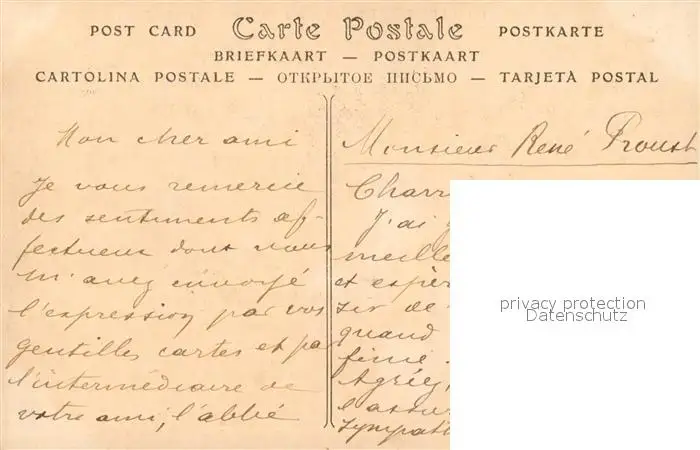 POST CARD Carte Postale POSTKARTE
BRIEFKAART — POSTKAART
CARTOLINA POSTALE — ОТКРЫТОЕ ПИСЬМО — TARJETA POSTAL
Mon cher ami
Je vous remercie
des sentiments af-
fectueux dont vous
m'avez envoyé
l'expression par vos
gentilles cartes et pa
l'intermédiaire de
votre ami, l'abbé
Monsieur René Proust
Charr
J'ai
meille
et espér
sir de
quand
fini
Agréez,
l'assur
sympat
privacy protection
Datenschutz